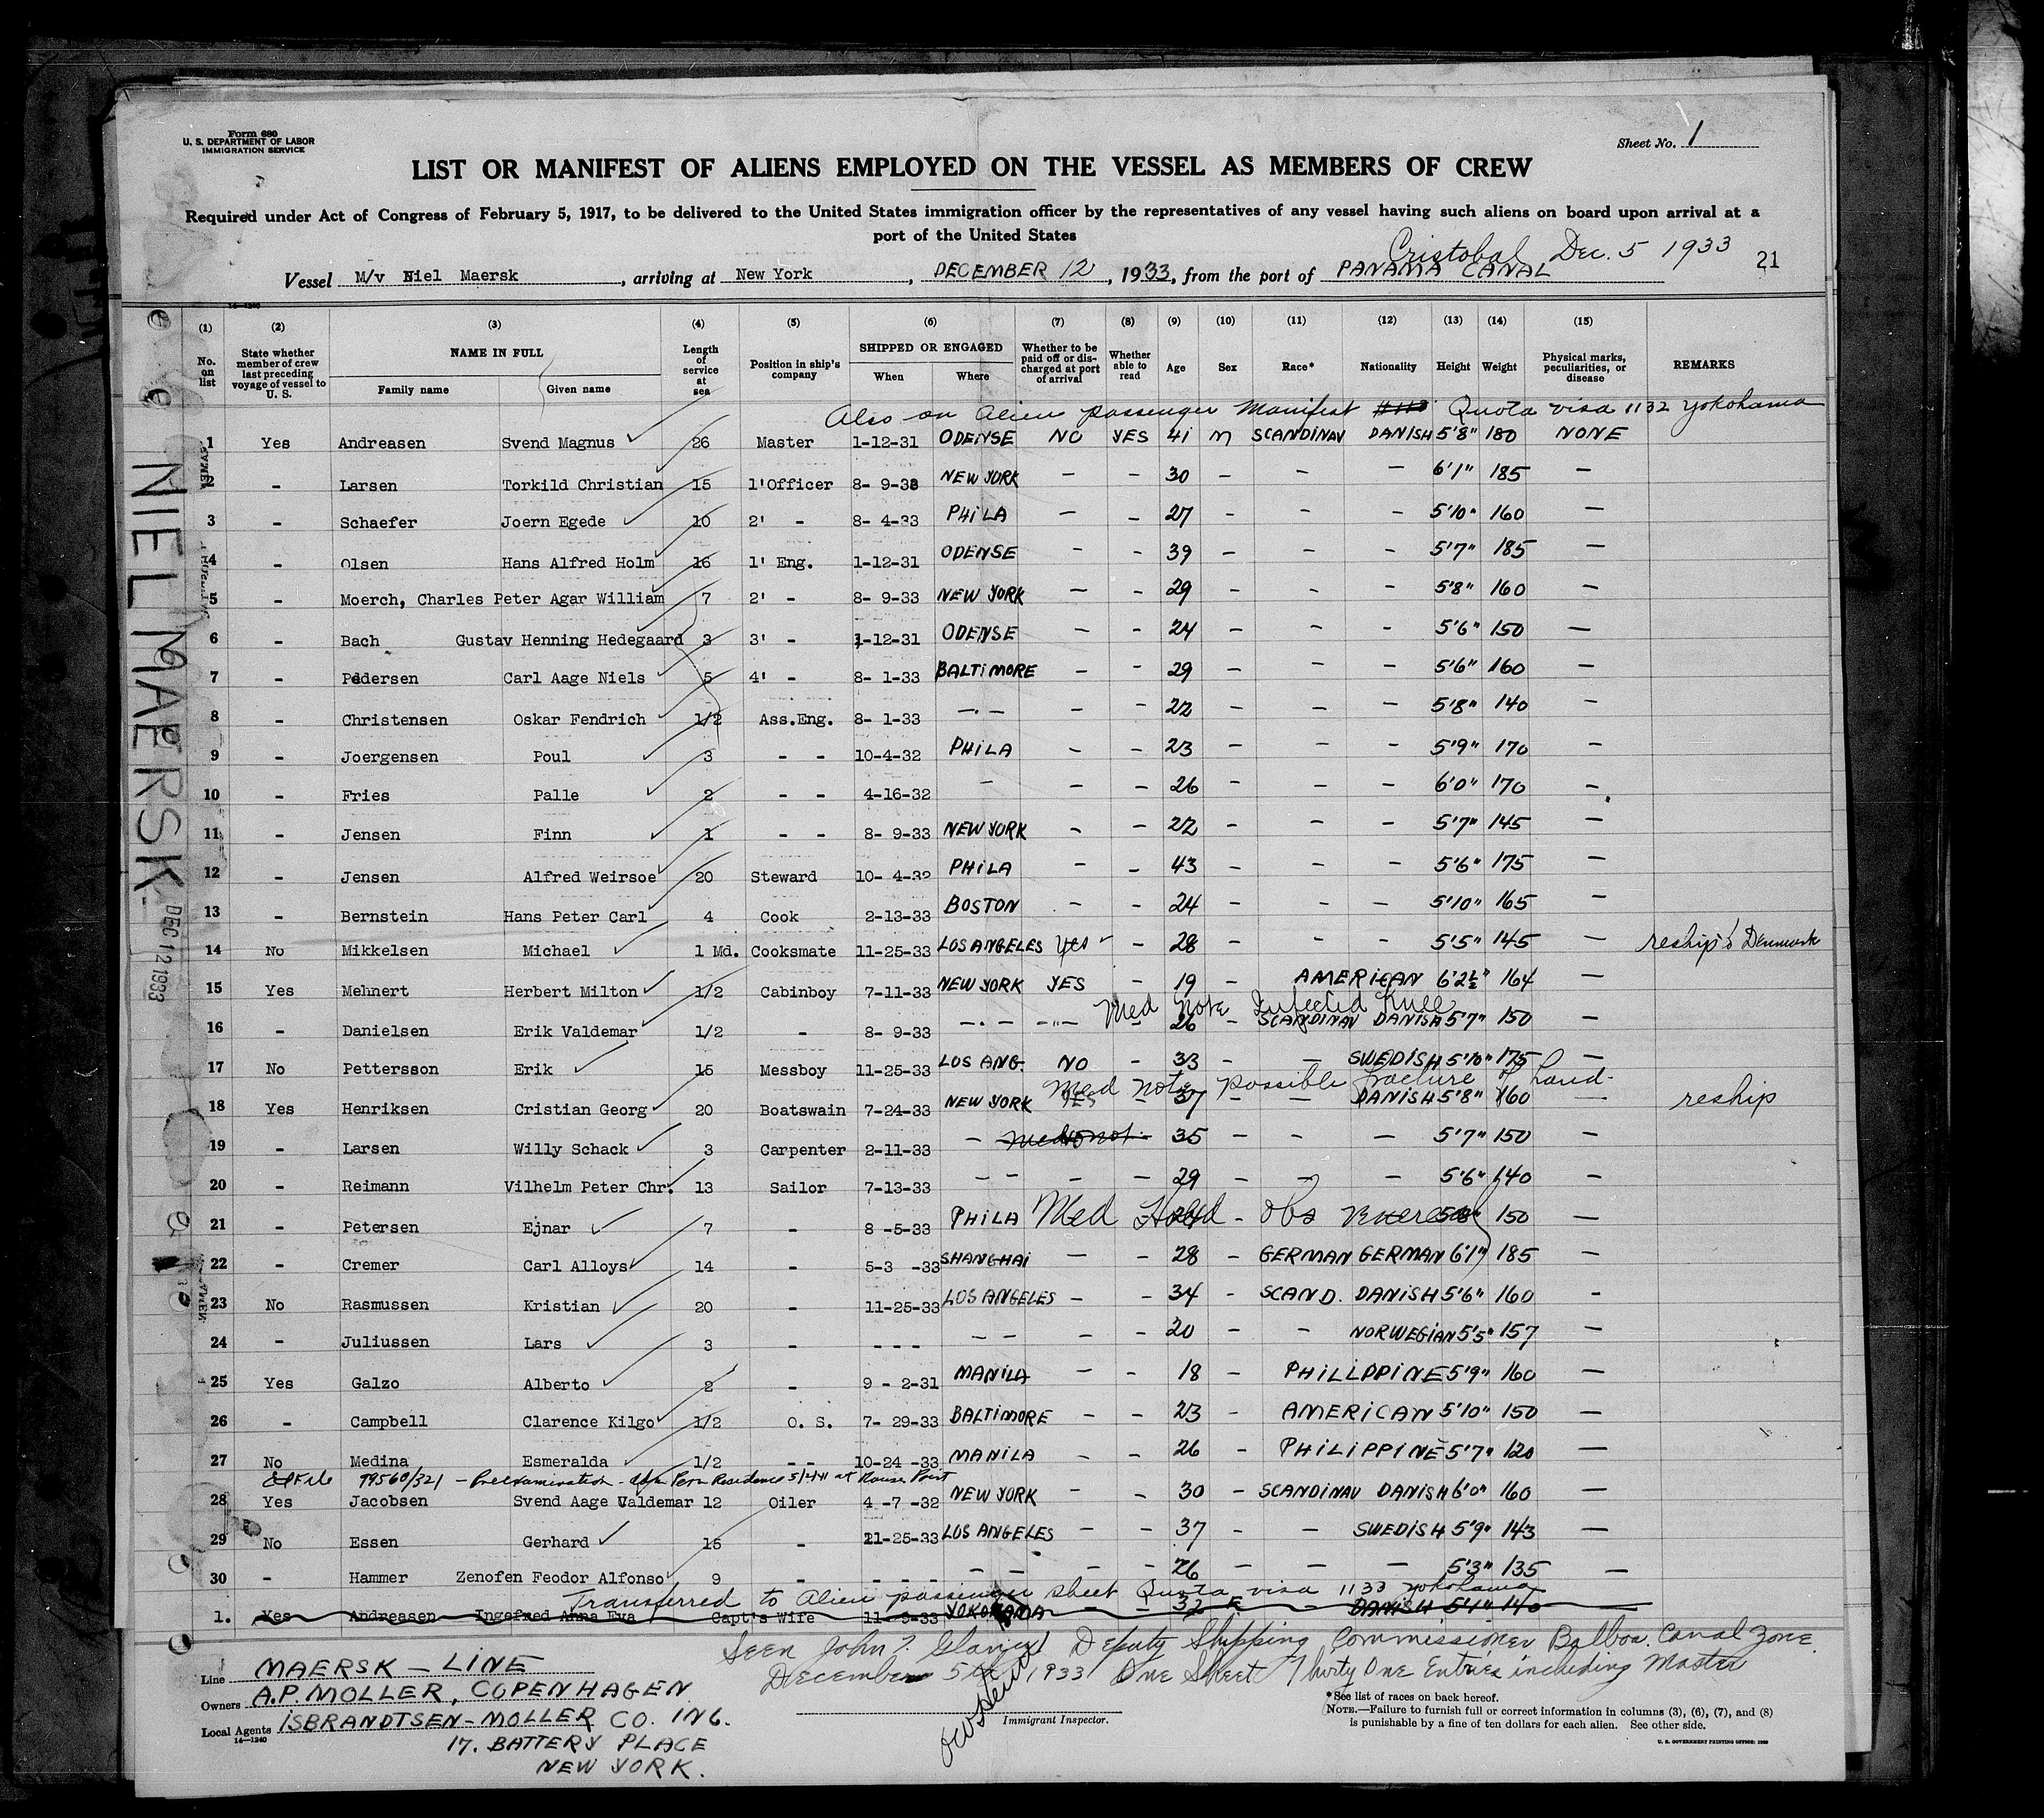 Form 680
U. S. DEPARTMENT OF LABOR
IMMIGRATION SERVICE
Sheet No. 1
LIST OR MANIFEST OF ALIENS EMPLOYED ON THE VESSEL AS MEMBERS OF CREW
Required under Act of Congress of February 5, 1917, to be delivered to the United States immigration officer by the representatives of any vessel having such aliens on board upon arrival at a
port of the United States
Cristobal Dec. 5 1933
Vessel M/v Niel Maersk, arriving at New York, DECEMBER 12, 1933, from the port of PANAMA CANAL 21
14-1240
(1) (2) (3) (4) (5) (6) (7) (8) (9) (10) (11) (12) (13) (14) (15)
No. on list State whether member of crew last preceding voyage of vessel to U. S. NAME IN FULL Family name Given name Length of service at sea Position in ship's company SHIPPED OR ENGAGED When Where Whether to be paid off or discharged at port of arrival Whether able to read Age Sex Race* Nationality Height Weight Physical marks, peculiarities, or disease REMARKS
Also on Alien passenger Manifest Quota visa 1132 Yokohama
1 Yes Andreasen Svend Magnus 26 Master 1-12-31 ODENSE NO YES 41 M SCANDINAV DANISH 5'8" 180 NONE
2 - Larsen Torkild Christian 15 1'Officer 8- 9-33 NEW YORK - - 30 - - - 6'1" 185 -
3 - Schaefer Joern Egede 10 2' - 8- 4-33 PHILA - - 27 - - - 5'10" 160 -
4 - Olsen Hans Alfred Holm 16 1' Eng. 1-12-31 ODENSE - - 39 - - - 5'7" 185 -
5 - Moerch, Charles Peter Agar William 7 2' - 8- 9-33 NEW YORK - - 29 - - - 5'8" 160 -
6 - Bach Gustav Henning Hedegaard 3 3' - 1-12-31 ODENSE - - 24 - - - 5'6" 150 -
7 - Pedersen Carl Aage Niels 5 4' - 8- 1-33 BALTIMORE - - 29 - - - 5'6" 160 -
8 - Christensen Oskar Fendrich 1/2 Ass.Eng. 8- 1-33 -"- - - 22 - - - 5'8" 140 -
9 - Joergensen Poul 3 - - 10-4-32 PHILA - - 23 - - - 5'9" 170 -
10 - Fries Palle 2 - - 4-16-32 - - - 26 - - - 6'0" 170 -
11 - Jensen Finn 1 - - 8- 9-33 NEW YORK - - 22 - - - 5'7" 145 -
12 - Jensen Alfred Weirsoe 20 Steward 10- 4-32 PHILA - - 43 - - - 5'6" 175 -
13 - Bernstein Hans Peter Carl 4 Cook 2-13-33 BOSTON - - 24 - - - 5'10" 165 -
14 No Mikkelsen Michael 1 Md. Cooksmate 11-25-33 LOS ANGELES Yes - 28 - - - 5'5" 145 - reship'd Denmark
15 Yes Mehnert Herbert Milton 1/2 Cabinboy 7-11-33 NEW YORK YES - 19 - AMERICAN 6'2½" 164 -
Med Note Infected Knee
16 - Danielsen Erik Valdemar 1/2 - 8- 9-33 -"- -"- - 26 - SCANDINAV DANISH 5'7" 150 -
17 No Pettersson Erik 15 Messboy 11-25-33 LOS ANG. NO - 33 - - SWEDISH 5'10" 175 -
Med note possible fracture of hand.
18 Yes Henriksen Cristian Georg 20 Boatswain 7-24-33 NEW YORK YES - 37 - - DANISH 5'8" 160 - reship
19 - Larsen Willy Schack 3 Carpenter 2-11-33 - 35 - - - 5'7" 150 -
20 - Reimann Vilhelm Peter Chr. 13 Sailor 7-13-33 - - - - 29 - - - 5'6" 140 -
21 - Petersen Ejnar 7 - 8 -5-33 PHILA Med Hold - Obs Venereal 5'8" 150 -
22 - Cremer Carl Alloys 14 - 5-3 -33 SHANGHAI - - 28 - GERMAN GERMAN 6'1" 185 -
23 No Rasmussen Kristian 20 - 11-25-33 LOS ANGELES - - 34 - SCAND. DANISH 5'6" 160 -
24 - Juliussen Lars 3 - - - - - - - - 20 - - NORWEGIAN 5'5" 157 -
25 Yes Galzo Alberto 2 - 9 - 2-31 MANILA - - 18 - PHILLPPINE 5'9" 160 -
26 - Campbell Clarence Kilgo 1/2 O. S. 7- 29-33 BALTIMORE - - 23 - AMERICAN 5'10" 150 -
27 No Medina Esmeralda 1/2 - - 10-24 -33 MANILA - - 26 - PHILIPPINE 5'7" 120 -
File 99560/321 - Preexamination - Perm Residence 5/4/41 at Rouses Point
28 Yes Jacobsen Svend Aage Valdemar 12 Oiler 4 -7 -32 NEW YORK - - 30 - SCANDINAV DANISH 6'0" 160 -
29 No Essen Gerhard 15 - 11-25-33 LOS ANGELES - - 37 - - SWEDISH 5'9" 143 -
30 - Hammer Zenofen Feodor Alfonso 9 - - - - - - - - 26 - - - 5'3" 135 -
Transferred to Alien passenger sheet Quota visa 1133 Yokohama
1. Yes Andreasen Ingefred Anna Eva Capt's Wife 11- -33 YOKOHAMA - - 32 F - DANISH 5'4" 140 -
Seen John Deputy Shipping Commissioner Balboa, Canal Zone.
December 5th 1933 One Sheet Thirty One Entries including Master
Line MAERSK - LINE
Owners A.P. MOLLER, COPENHAGEN
Local Agents ISBRANDTSEN-MOLLER CO. INC.
14-1240
17. BATTERY PLACE
NEW YORK.
Immigrant Inspector.
*See list of races on back hereof.
NOTE.—Failure to furnish full or correct information in columns (3), (6), (7), and (8)
is punishable by a fine of ten dollars for each alien. See other side.
U. S. GOVERNMENT PRINTING OFFICE:
NIEL MAERSK-
DEC 12 1933